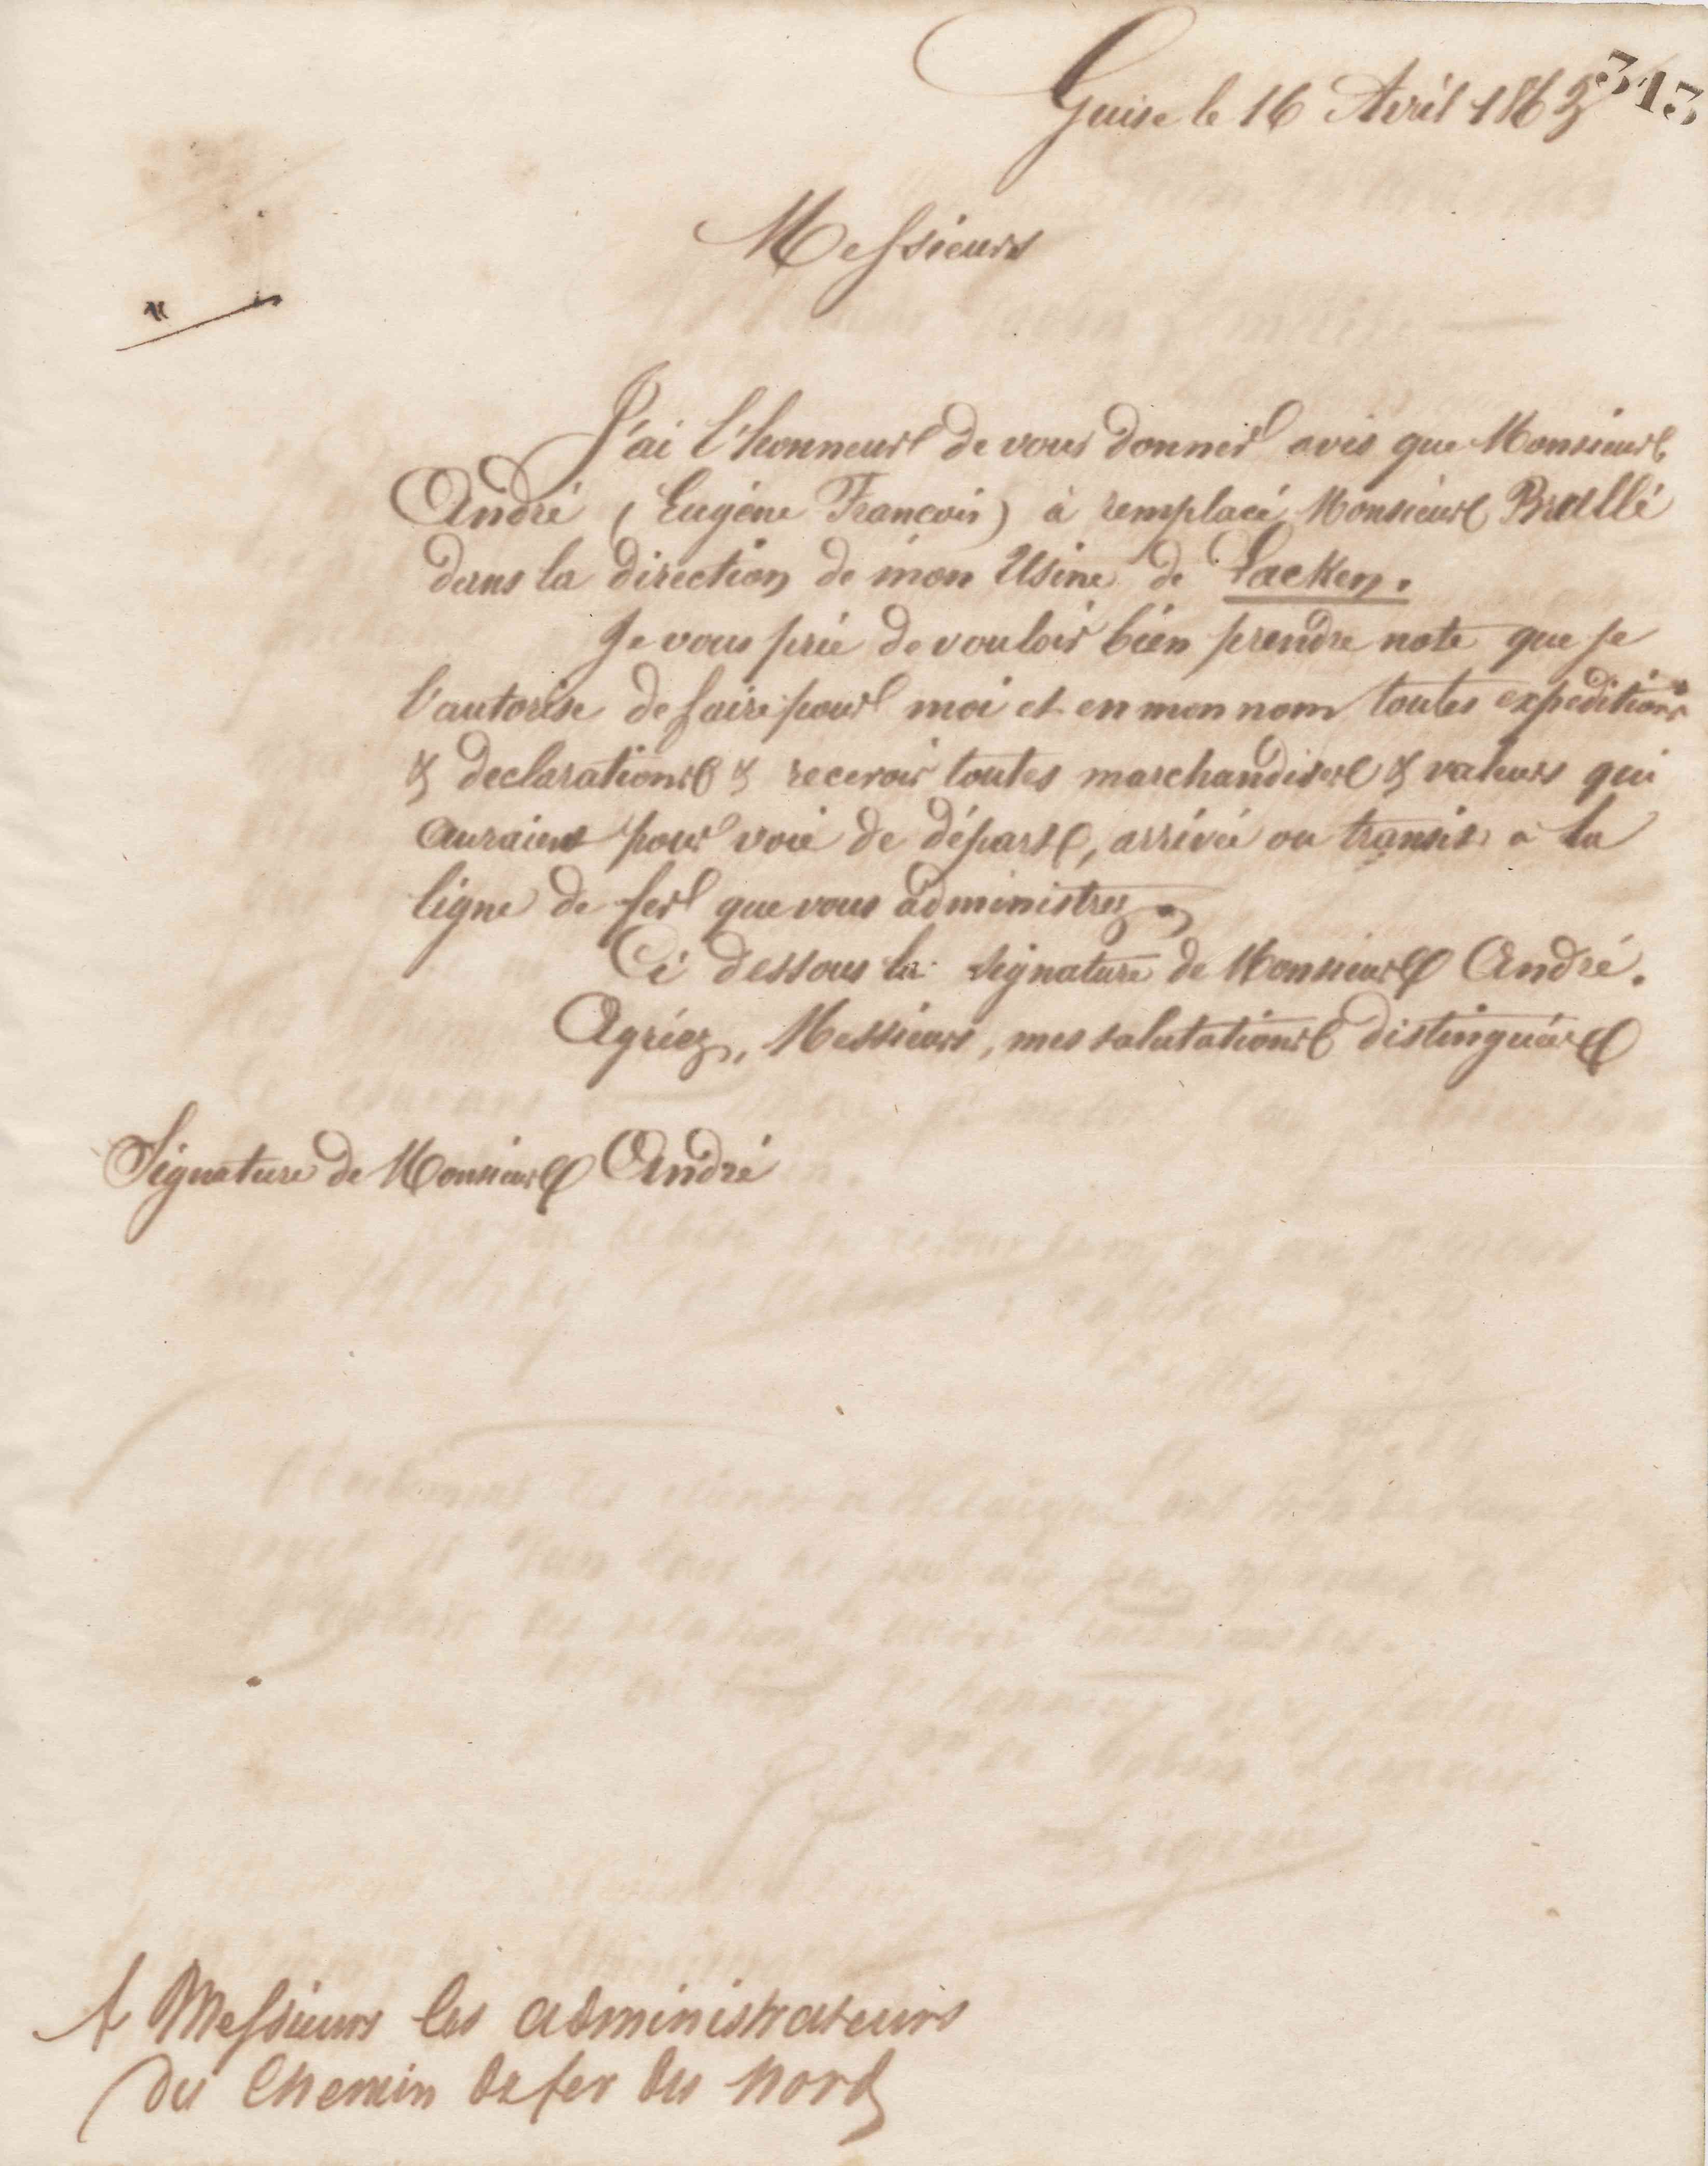 313
Guise le 16 Avril 1863
Messieurs
J'ai l'honneur de vous donner avis que Monsieur
André (Eugène François) à remplacé Monsieur Brullé
dans la direction de mon Usine de Lacken.
Je vous prie de vouloir bien prendre note que je
l'autorise de faire pour moi et en mon nom toutes expéditions
& declarations & recevoir toutes marchandises & valeurs qui
auraient pour voie de départ, arrivée ou transit à la
ligne de fer que vous administrez.
Ci dessous la signature de Monsieur André.
Agréez, Messieurs, mes salutations distinguées
Signature de Monsieur André
A Messieurs les administrateurs
du Chemin de fer du Nord